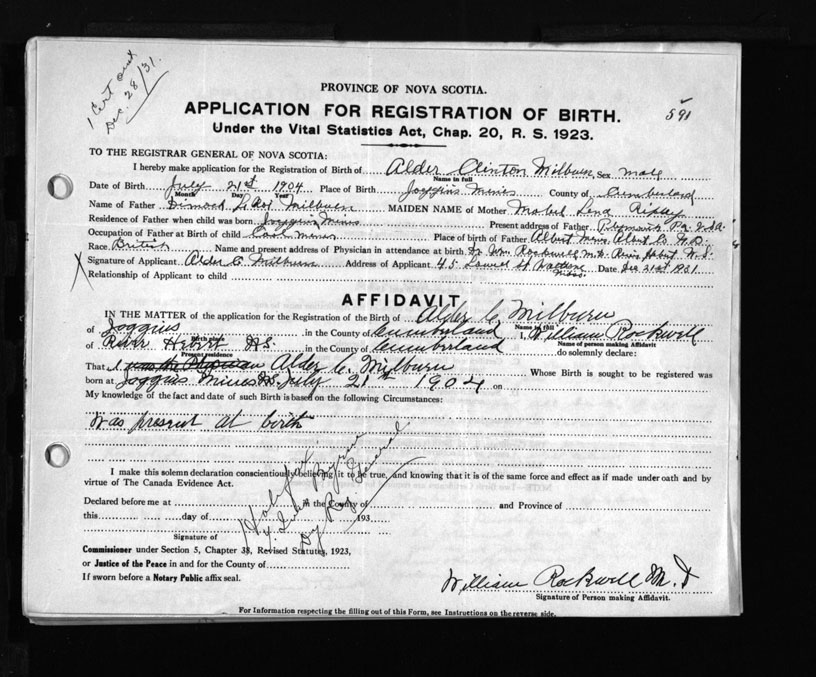 1 Cert out
Dec. 28/31.
PROVINCE OF NOVA SCOTIA.
APPLICATION FOR REGISTRATION OF BIRTH.
591
Under the Vital Statistics Act, Chap. 20, R. S. 1923.
TO THE REGISTRAR GENERAL OF NOVA SCOTIA:
I hereby make application for the Registration of Birth of Alder Clinton Milburn Sex male
Name in full
Date of Birth July 21st 1904 Place of Birth Joggins Mines County of Cumberland
Month Day
Name of Father Milburn MAIDEN NAME of Mother Mabel Lena Ripley
Residence of Father when child was born Joggins Mines Present address of Father Plymouth Pa U.S.A.
Occupation of Father at Birth of child Coal miner Place of birth of Father Albert Mines Albert Co N.B.
Race British Name and present address of Physician in attendance at birth Dr Wm Rockwell M.D. River Hebert N.S.
Signature of Applicant Alder C. Milburn Address of Applicant 45 St Mass. Date Dec 21st 1931
Relationship of Applicant to child
AFFIDAVIT
IN THE MATTER of the application for the Registration of the Birth of Alder C. Milburn
Name in full
of Joggins in the County of Cumberland I, William Rockwell
Birth place
Name of person making Affidavit
of River Hebert N.S. in the County of Cumberland do solemnly declare:
Present residence
That I was the Physician Alder C. Milburn Whose Birth is sought to be registered was
born at Joggins Mines N.S. July 21st 1904 on
My knowledge of the fact and date of such Birth is based on the following Circumstances:
Was present at birth
I make this solemn declaration conscientiously believing it to be true, and knowing that it is of the same force and effect as if made under oath and by
virtue of The Canada Evidence Act.
Declared before me at in the County of and Province of
this day of 193
Halifax
Dy Reg General
Signature of
Commissioner under Section 5, Chapter 38, Revised Statutes, 1923,
or Justice of the Peace in and for the County of
If sworn before a Notary Public affix seal.
William Rockwell M.D
Signature of Person making Affidavit.
For Information respecting the filling out of this Form, see Instructions on the reverse side.